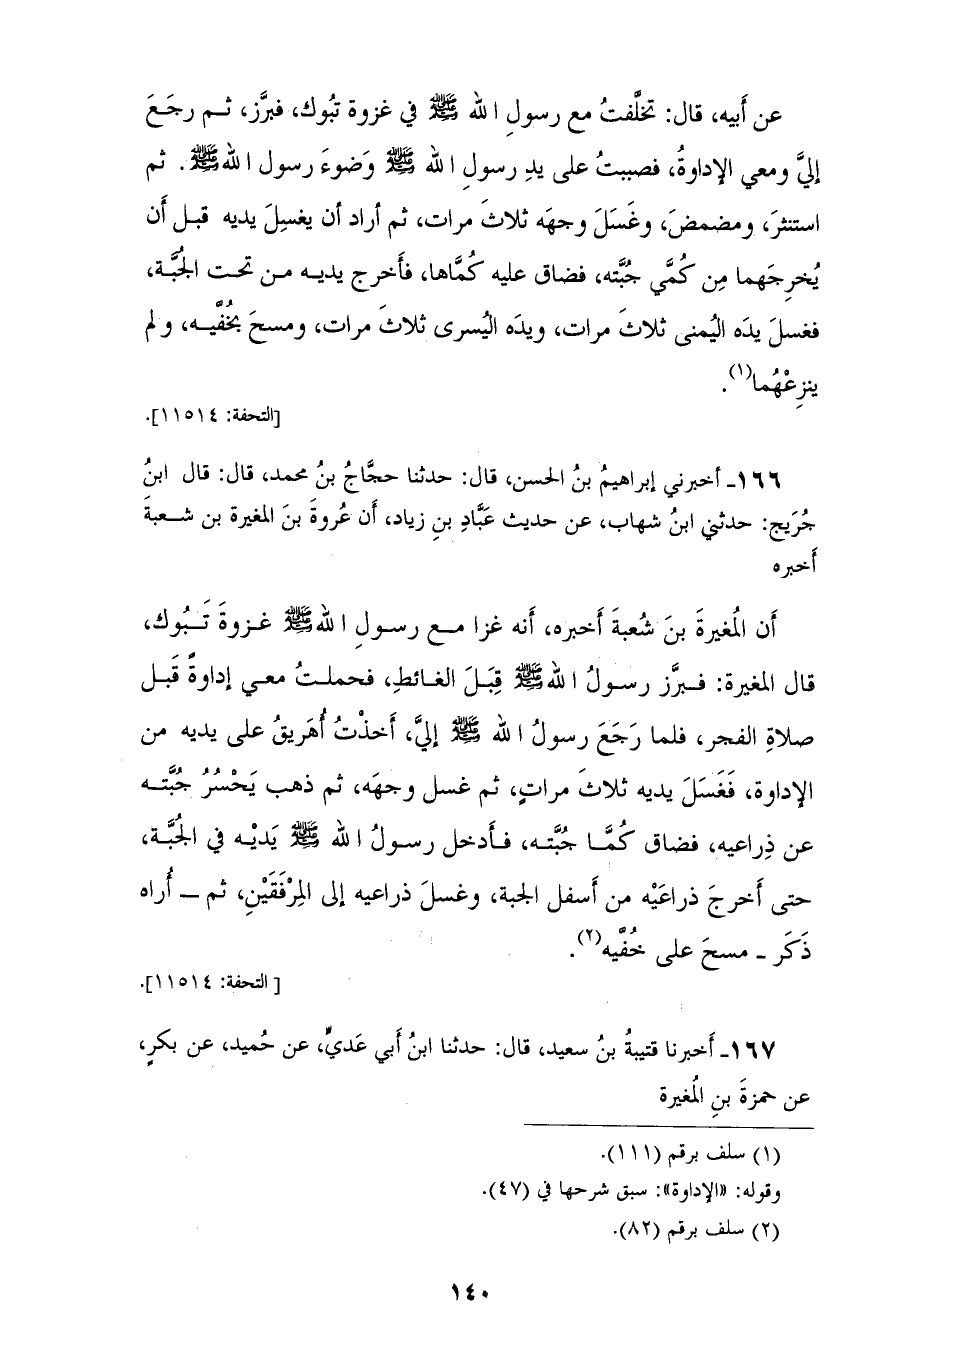 عن أَبيه، قال: تخلَّفتُ مع رسولِ الله ﷺ في غزوة تبُوك، فبرَّز، ثم رجَعَ
إليَّ ومعي الإداوةُ، فصببتُ على يدِ رسولِ الله ﷺ وَضوءَ رسول الله ﷺ. ثم
استنثرَ، ومضمضَ، وغَسَلَ وجهَه ثلاثَ مرات، ثم أراد أن يغسِلَ يديه قبل أَن
يُخرِجَهما مِن كُمَّي جُبَّته، فضاق عليه كُمَّاها، فأَخرج يديه من تحت الجُبَّة،
فغسلَ يدَه اليُمنى ثلاثَ مرات، ويدَه اليُسرى ثلاثَ مرات، ومسحَ بخُفَّيه، ولم
ينزِعْهُما(١).
[التحفة: ١١٥١٤].
١٦٦ـ أخبرني إبراهيمُ بنُ الحسن، قال: حدثنا حجَّاجُ بنُ محمد، قال: قال ابنُ
جُرَيج: حدثني ابنُ شهاب، عن حديث عَبَّادِ بنِ زياد، أن عُروةَ بنَ المغيرة بن شعبةَ
أَخبره
أَن المُغيرةَ بنَ شُعبةَ أَخبره، أَنه غزا مع رسولِ الله ﷺ غزوةَ تَبُوك،
قال المغيرة: فبرَّز رسولُ الله ﷺ قِبَلَ الغائطِ، فحملتُ معي إداوةً قَبل
صلاةِ الفجر، فلما رَجَعَ رسولُ الله ﷺ إليَّ، أَخذْتُ أُهَرِيقُ على يديه من
الإداوة، فَغَسَلَ يديه ثلاثَ مراتٍ، ثم غسل وجهَه، ثم ذهب يَحْسُرُ جُبَّته
عن ذِراعيه، فضاق كُمَّا جُبَّته، فأدخل رسولُ الله ﷺ يَديْه في الجُبَّة،
حتى أَخرجَ ذراعَيْه من أَسفل الجبة، وغسلَ ذراعيه إلى المِرْفَقَيْنِ، ثم ـ أُراه
ذَكَر ـ مسحَ على خُفَّيه(٢).
[التحفة: ١١٥١٤].
١٦٧ـ أَخبرنا قتيبةُ بنُ سعيد، قال: حدثنا ابنُ أَبي عَديٍّ، عن حُميد، عن بكرٍ،
عن حمزةَ بنِ المُغيرة
(١) سلف برقم (١١١).
وقوله: «الإداوة»: سبق شرحها في (٤٧).
(٢) سلف برقم (٨٢).
١٤٠